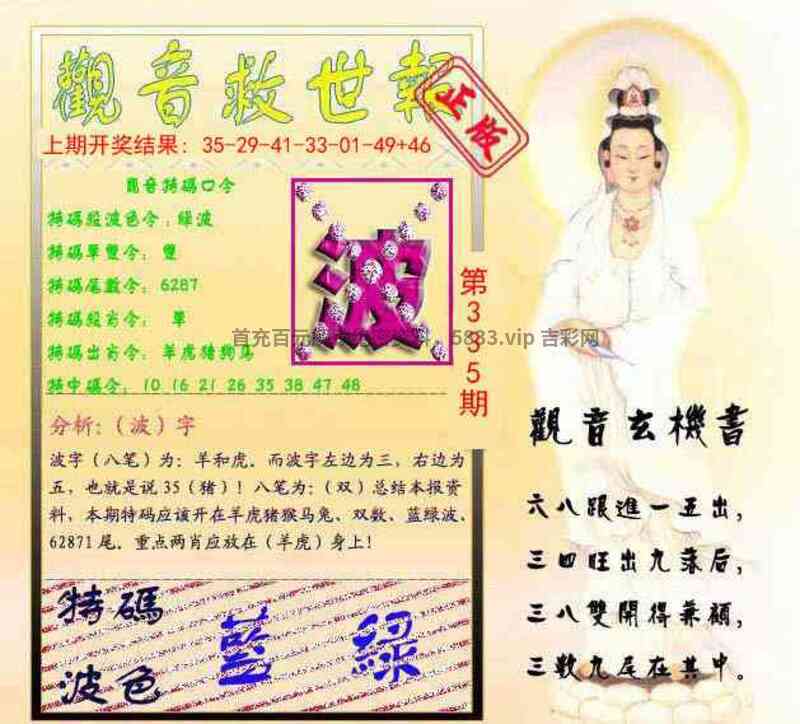 觀音救世報
正版
上期开奖结果：35-29-41-33-01-49+46
觀音特碼口令
特碼短波色令：綠波
特碼單雙令：雙
特碼尾數令：6287
特碼段肖令：單
特碼出肖令：羊虎猪狗馬
特中碼令：10 16 21 26 35 38 47 48
波
第335期
首充百元 5883.vip 吉彩网
分析：（波）字
波字（八笔）为：羊和虎．而波字左边为三，右边为
五，也就是说35（猪）！八笔为：（双）总结本报资
料，本期特码应该开在羊虎猪猴马兔、双数、蓝绿波、
62871尾．重点两肖应放在（羊虎）身上！
特碼
波色
藍 綠
觀音玄機書
六八跟進一五出，
三四旺出九落后，
三八雙開得兼顧，
三數九尾在其中。